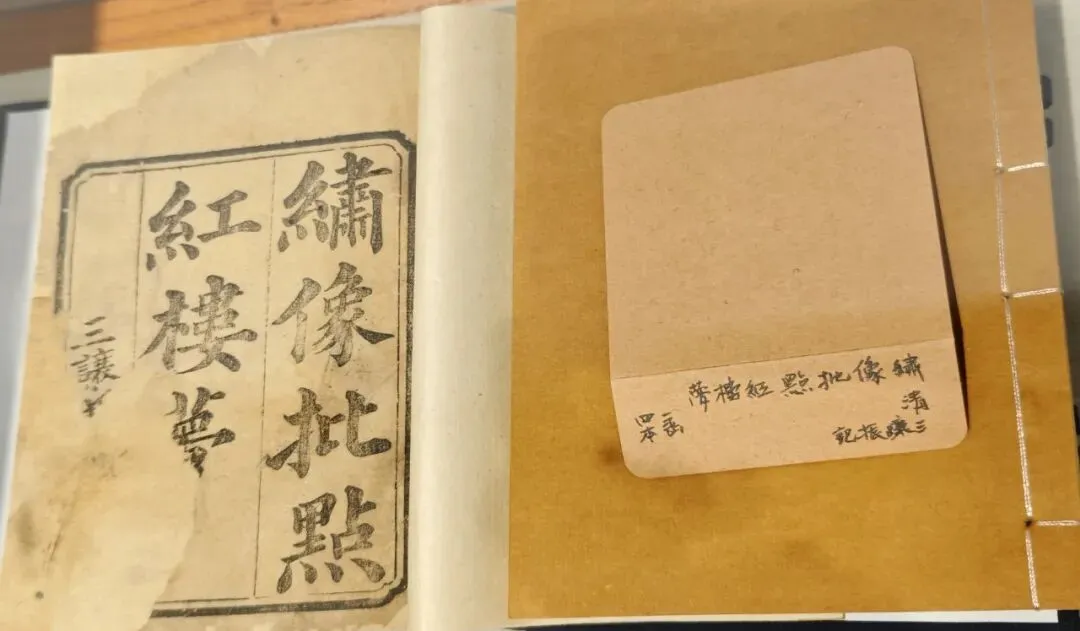 繡像批點
紅樓夢
三讓
繡像批點紅樓夢
清
三讓振記
函
四本